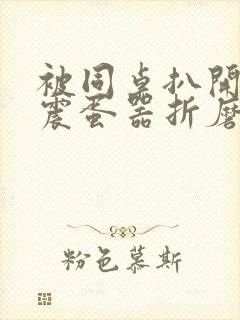 被同桌扒開
震蛋器折磨
粉色慕斯